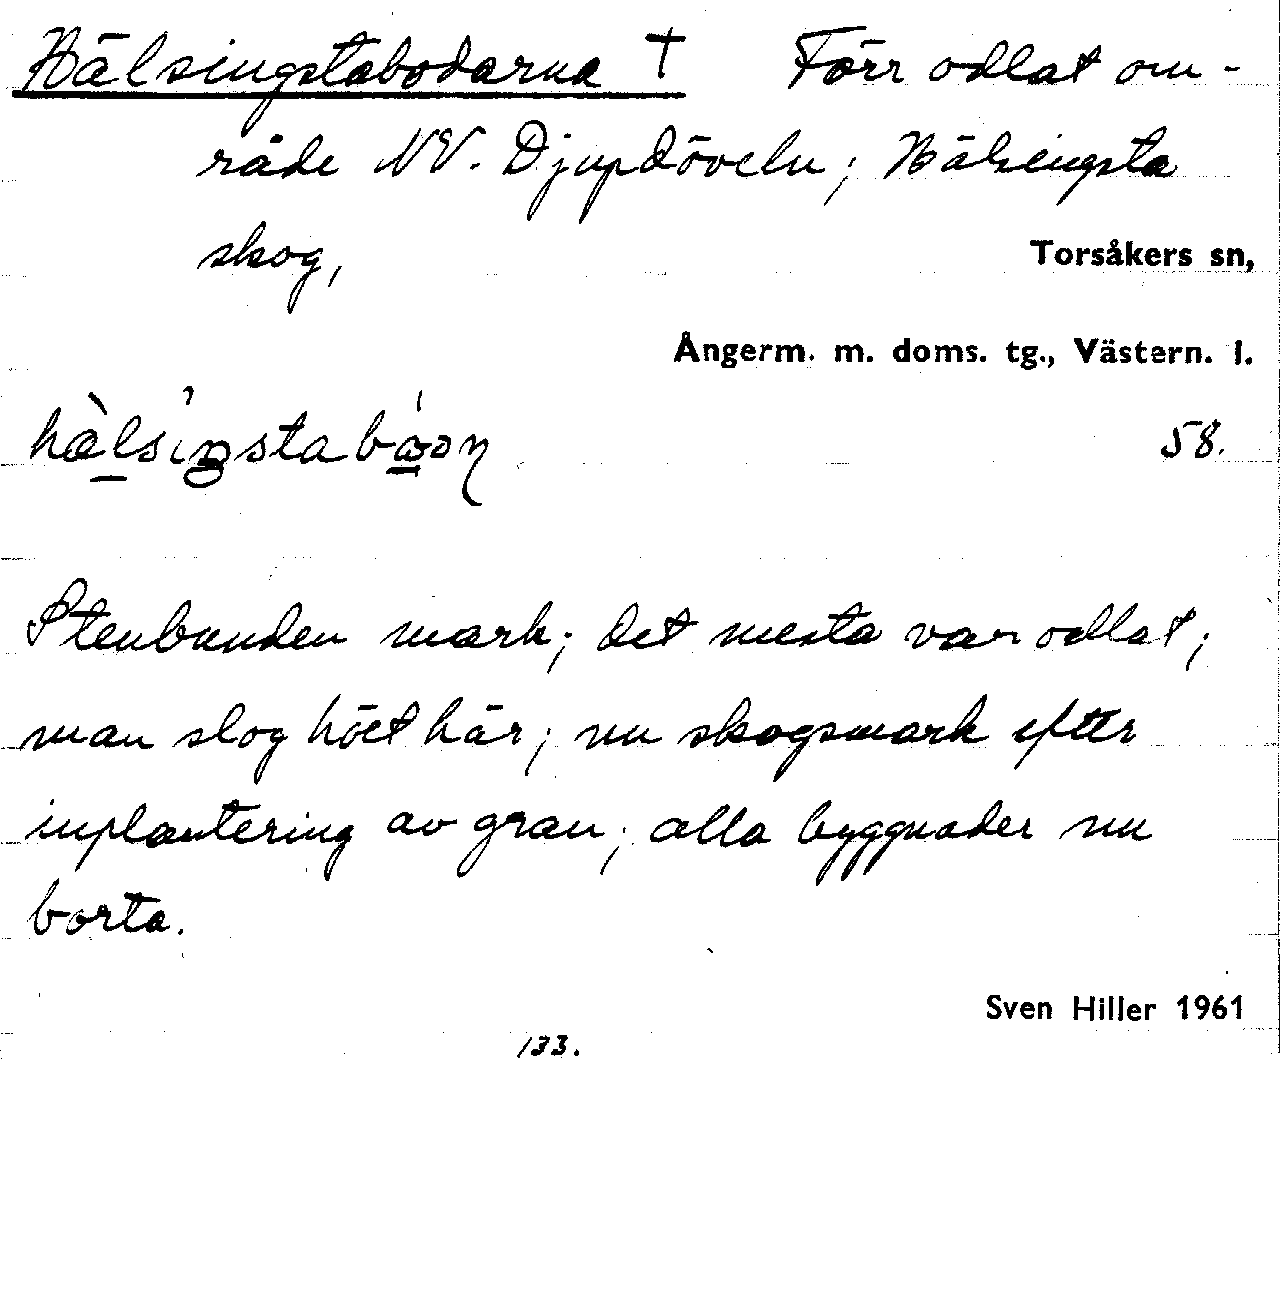 Hälsingstabodarna † Förr odlat om-
råde NV. Djupdöveln; Hälsingsta
skog, Torsåkers sn,
Ångerm. m. doms. tg., Västern. l.
58.
Stenbunden mark; det mesta var odlat;
man slog höet här; nu skogsmark efter
inplantering av gran; alla byggnader nu
borta.
Sven Hiller 1961
133.